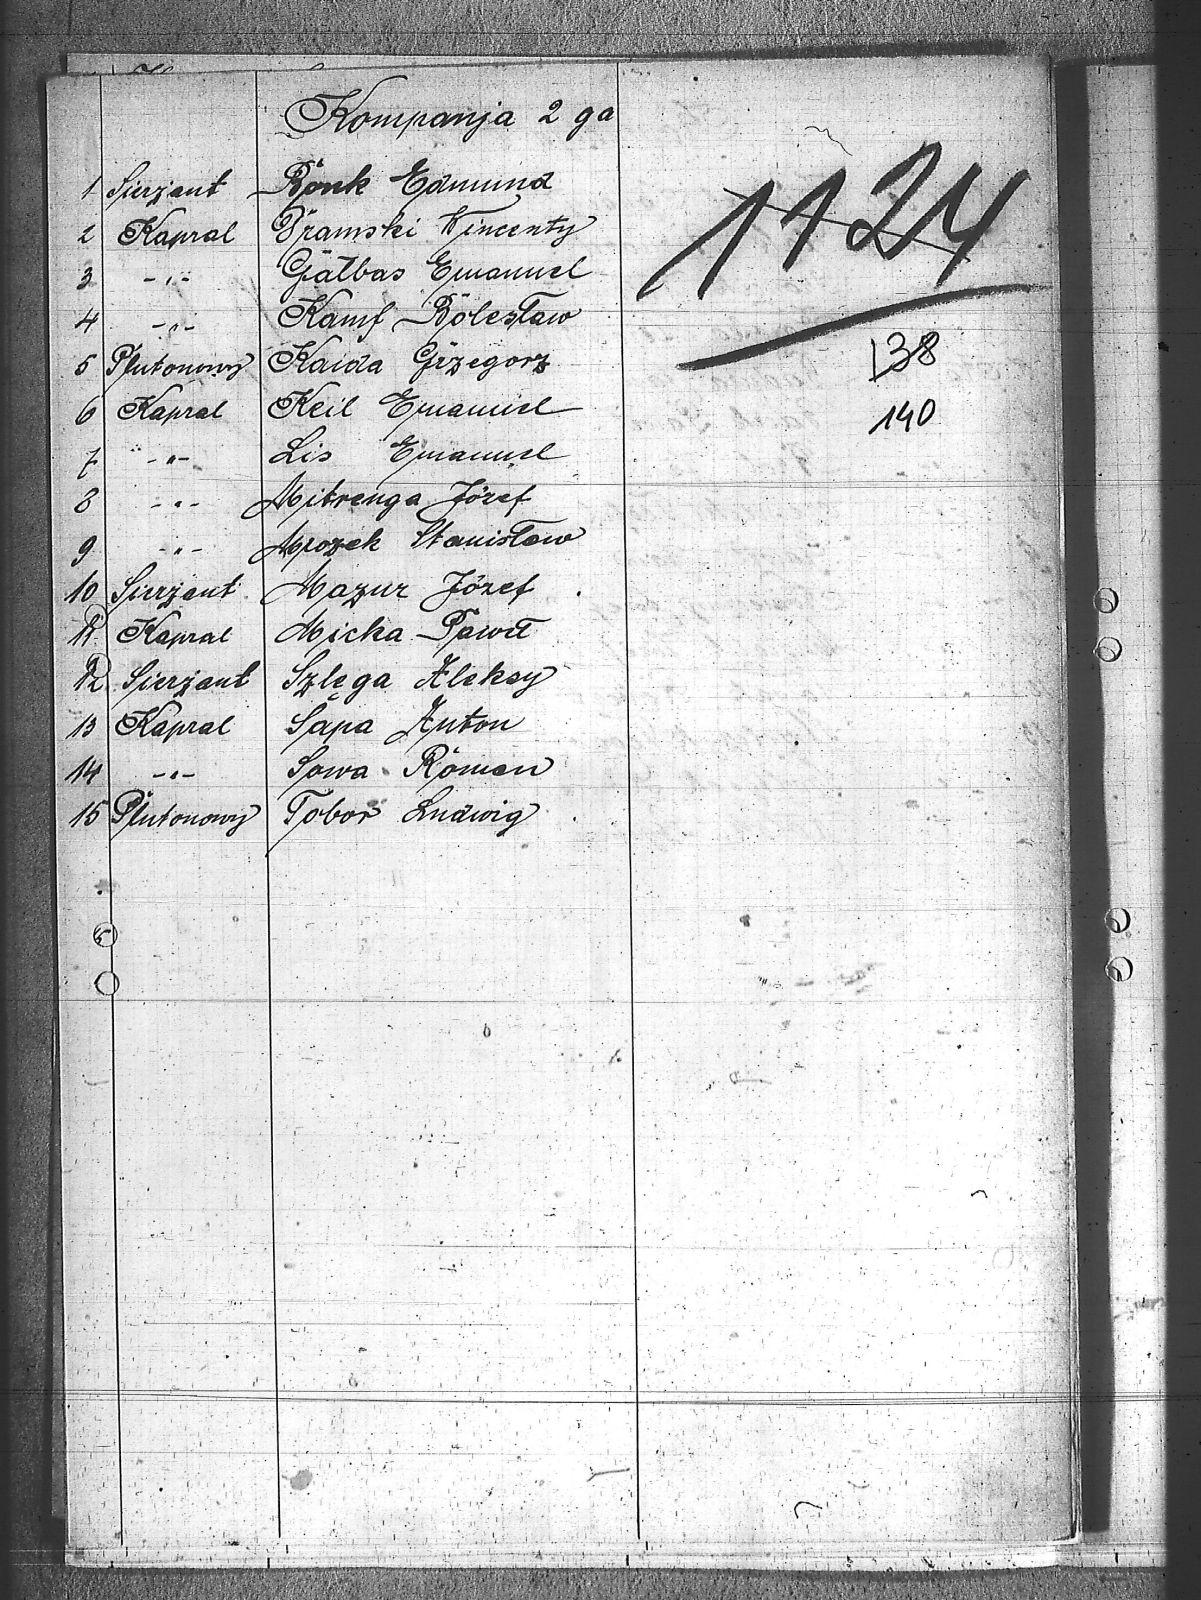 Kompanja 2 ga
1 Sierzant Bonk Edmund
2 Kapral Dramski Wincenty
3 -"- Gałbas Emanuel
4 -"- Kampf Bolesław
5 Plutonowy Kaida Grzegorz
6 Kapral Keil Emanuel
7 -"- Lis Emanuel
8 -"- Mitrenga Józef
9 -"- Mrozek Stanisław
10 Sierzant Mazur Józef
11 Kapral Micka Paweł
12 Sierzant Szlęga Aleksy
13 Kapral Sapa Anton
14 -"- Sowa Roman
15 Plutonowy Tobor Ludwig
1124
138
140